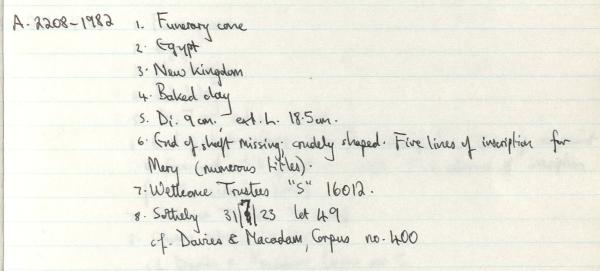 A.2208-1982 1. Funerary cone
2. Egypt
3. New Kingdom
4. Baked clay
5. Di. 9cm, ext. L. 18.5cm.
6. End of shaft missing; crudely shaped. Five lines of inscription for
Mery (numerous titles).
7. Wellcome Trustees "S" 16012.
8. Sotheby 31/7/23 lot 49
cf. Davies & Macadam, Corpus no. 400